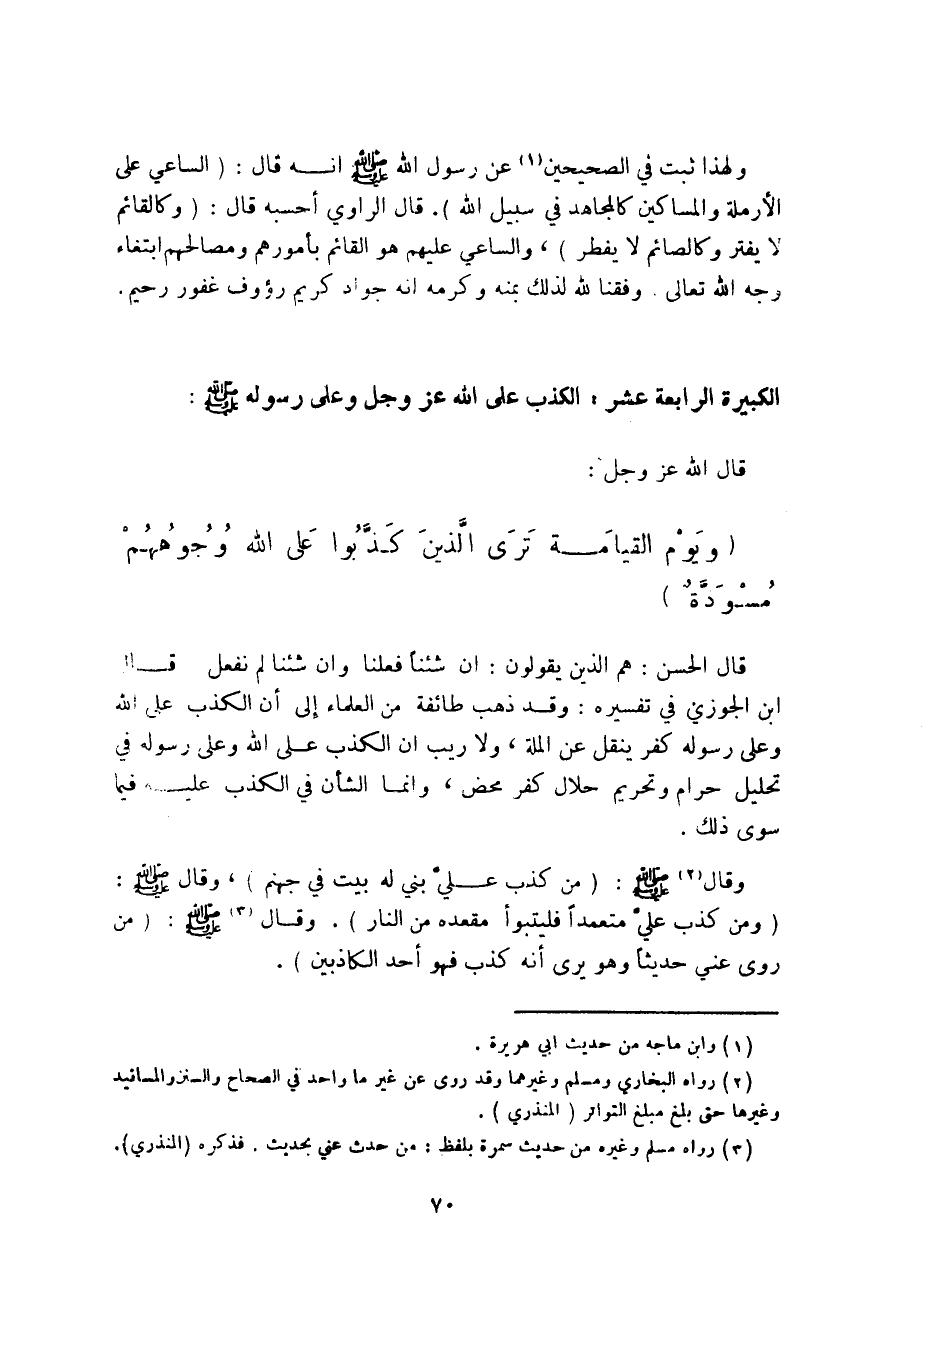 ولهذا ثبت في الصحيحين(١) عن رسول الله ﷺ انـــه قال : ( الساعي على
الأرملة والمساكين كالمجاهد في سبيل الله ). قال الراوي أحسبه قال : ( وكالقائم
لا يفتر وكالصائم لا يفطر ) ، والساعي عليهم هو القائم بأمورهم ومصالحهم ابتغاء
وجه الله تعالى . وفقنا لله لذلك بمنه وكرمه انه جواد كريم رؤوف غفور رحيم .
الكبيرة الرابعة عشر : الكذب على الله عز وجل وعلى رسوله ﷺ :
قال الله عز وجل :
( ويَوْم القيامَـــة تَرَى الَّذينَ كَـذَّبُوا عَلى الله وُجُوهُهُـمْ
مُسْـوَدَّةٌ )
قال الحسن : هم الذين يقولون : ان شئنا فعلنا وان شئنا لم نفعل قـــال
ابن الجوزي في تفسيره : وقـد ذهب طائفة من العلماء إلى أن الكذب على الله
وعلى رسوله كفر ينقل عن الملة ، ولا ريب ان الكذب عـلى الله وعلى رسوله في
تحليل حرام وتحريم حلال كفر محض ، وانمـا الشأن في الكذب عليـــه فيما
سوى ذلك .
وقال(٢) ﷺ : ( من كذب عــليّ بني له بيت في جهنم ) ، وقال ﷺ :
( ومن كذب عليّ متعمداً فليتبوأ مقعده من النار ) . وقـال (٣) ﷺ : ( من
روى عني حديثاً وهو يرى أنه كذب فهو أحد الكاذبين ) .
(١) وابن ماجه من حديث ابي هريرة .
(٢) رواه البخاري ومسلم وغيرهما وقد روى عن غير ما واحد في الصحاح والسنن والمسانيد
وغيرها حتى بلغ مبلغ التواتر ( المنذري ) .
(٣) رواه مسلم وغيره من حديث سمرة بلفظ : من حدث عني بحديث . فذكره (المنذري).
٧٠